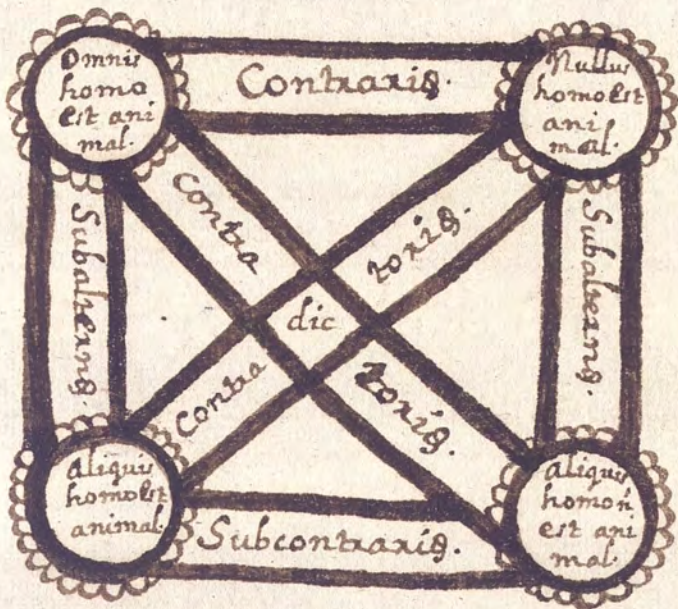 Omnis
homo
est ani
mal.
Contrarię.
Nullus
homo est
ani
mal.
Subalternę.
Contra
dic
torię.
Contra
torię.
Subalternę.
Aliquis
homo est
animal.
Subcontrarię.
Aliquis
homo ń
est ani
mal.